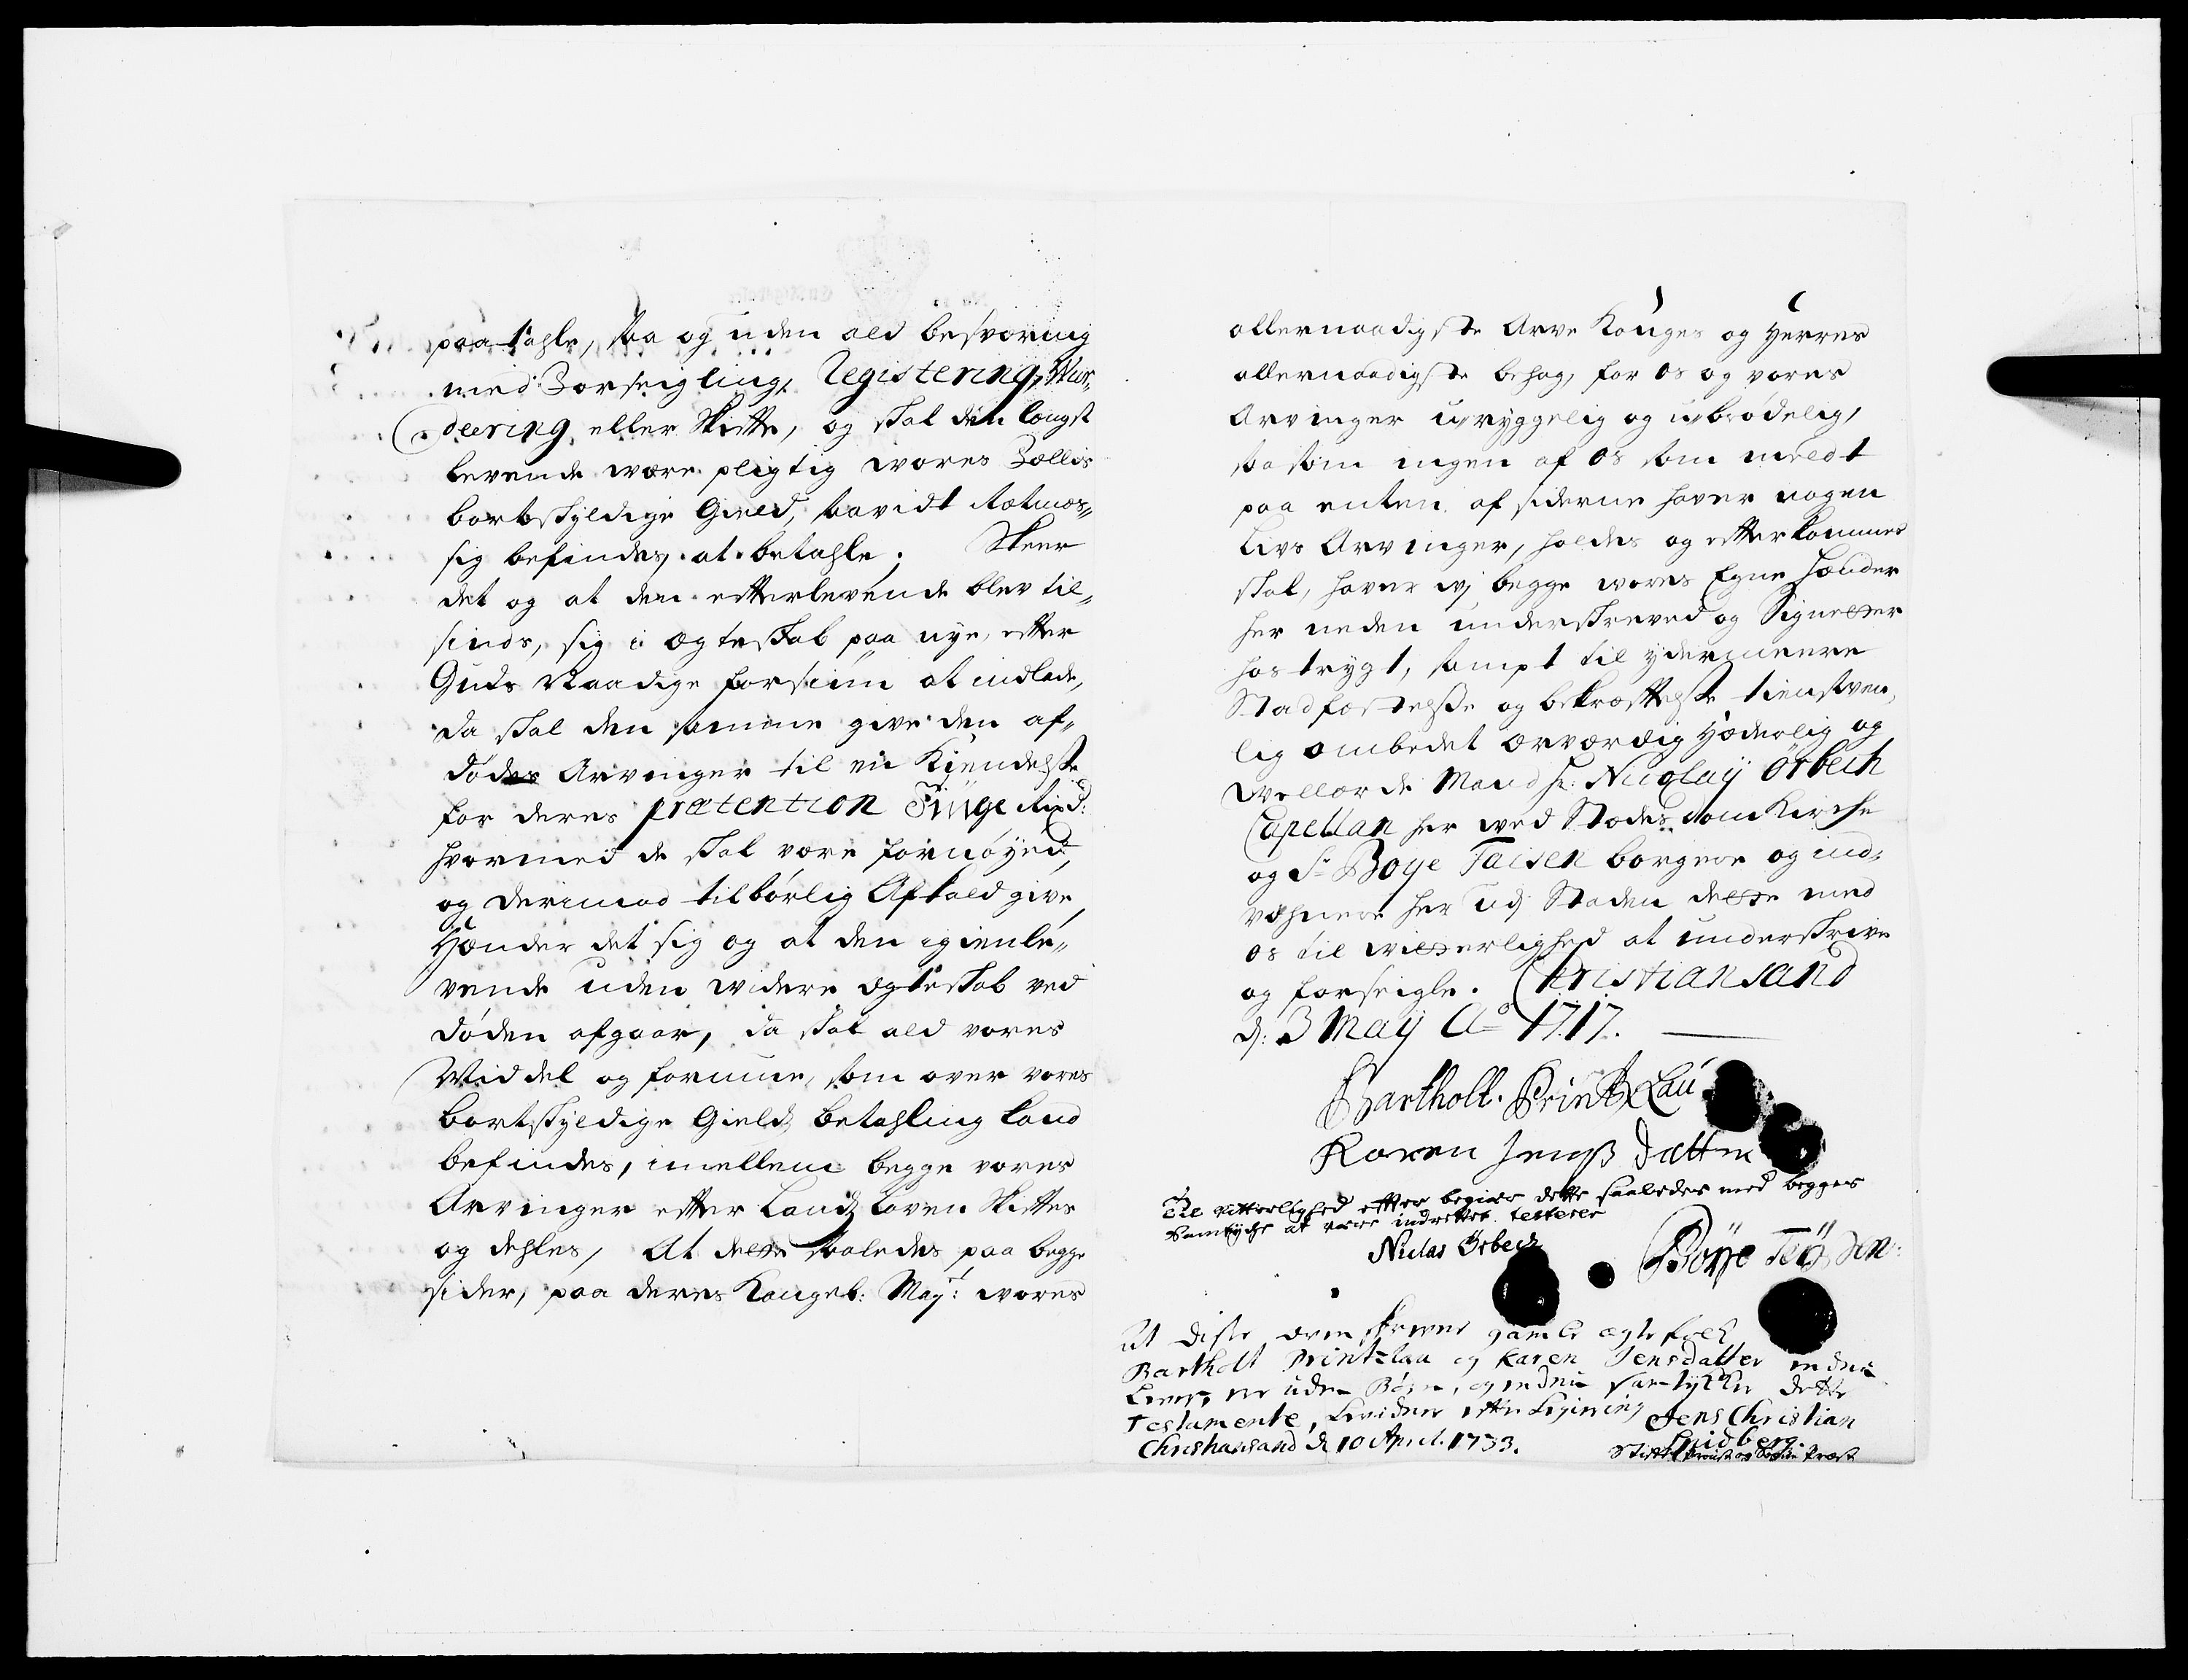 paatahle, saa og uden ald besværing
med Forseigling, Registering, Wur-
deering, eller Skifte, og skal den længst
levende være pligtig vores Fællis
bortskyldige Gield, saavidt
sig befindes, at betahle. Skeer
det og at den efterlevende blev til-
sinds, sig i Ægteskab paa nye, efter
Guds Naadige forsiun at indlade,
da skal den samme give den af-
dødes Arvinger til en Kiendelsse
for deres prætention Tiuge Rixd:
hvormed de skal være fornøyed,
og derimod tilbørlig Afkald give,
Hænder det sig og at den igienle-
vende uden widere ægteskab ved
døden afgaar, da skal ald vores
Middel og formue, som over vores
bortskyldige Gields betahling kand
befindes, imellem begge vores
Arvinger efter Lands Loven Skiftes
og dehles, At dette saaledes paa begge
sider, paa deres Kongel: May: vores
allernaadigste Arve Konges og Herres
allernaadigste behag, for os og vores
Arvinger uryggelig og ubrødelig,
saasom ingen af os som meldt
paa enten af siderne haver nogen
Livs Arvinger, holdes og efterkommes
skal, haver wj begge vores Egne Hænder
her neden underskreved og Signetter
hostrygt, sampt til ydermeere
Stadfæstelsse og bekræftelsse tienstven-
lig ombedet ærværdig Hæderlig og
vellærde Mand hr: Nicolaij Örbech
Capellan her wed Stædes Dom Kirche
og Sr Boye Taisen borgere og ind-
vohnere her udj Staden dette med
os til witterlighed at underskrive
og forseigle. Christiansand
d: 3 Maij Ao 1717.
Bartholt. Printzlau
Karen Jenß datter
Til vitterlighed efter begier dette saaledes med begges
Samtyche at være indrettet testerer
Niclas Örbech
Boÿe Teÿsen:
At disse ovenskrevne gamle ægtefolk
Bartholt Printzlau og Karen Jensdatter endnu
lever, er uden Børn, og endnu samtykker dette
Testamente, bevidner efter begiering Jens Christian
Christiansand d 10 April. 1733. Spidberg.
Stifts Provst og Sogne Præst